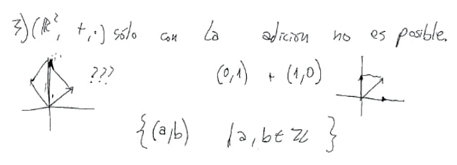 3) (ℝ², +, ·) sólo con la adición no es posible.
??? (0,1) + (1,0)
{(a,b) / a, b ∈ ℤ}